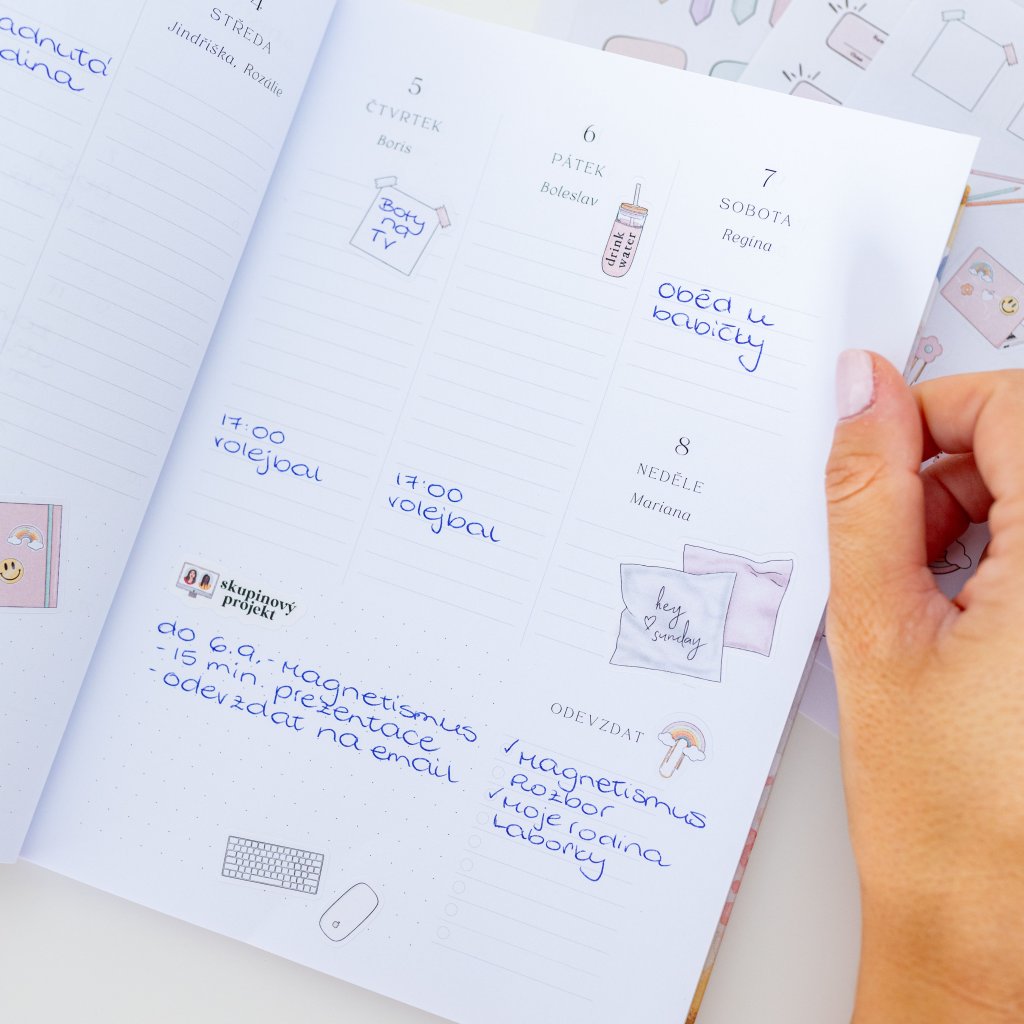 adnutá
dina
4
STŘEDA
Jindřiška, Rozálie
5
ČTVRTEK
Boris
Boty
na
TV
17:00
volejbal
6
PÁTEK
Boleslav
drink
water
17:00
volejbal
7
SOBOTA
Regína
Oběd u
babičky
8
NEDĚLE
Mariana
hey
sunday
skupinový
projekt
do 6.9.- Magnetismus
-15 min. prezentace
-odevzdat na email
ODEVZDAT
✓Magnetismus
Rozbor
✓Moje rodina
Laborky